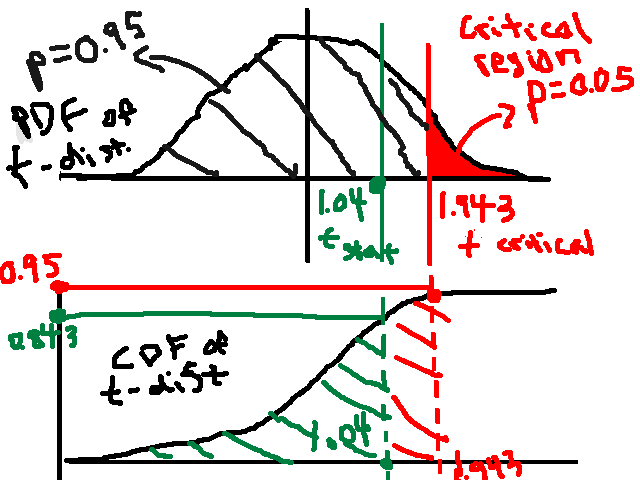 p=0.95
PDF of
t-dist.
Critical
region
p=0.05
1.04
t stat
1.943
t critical
0.95
0.843
CDF of
t-dist
1.04
1.943